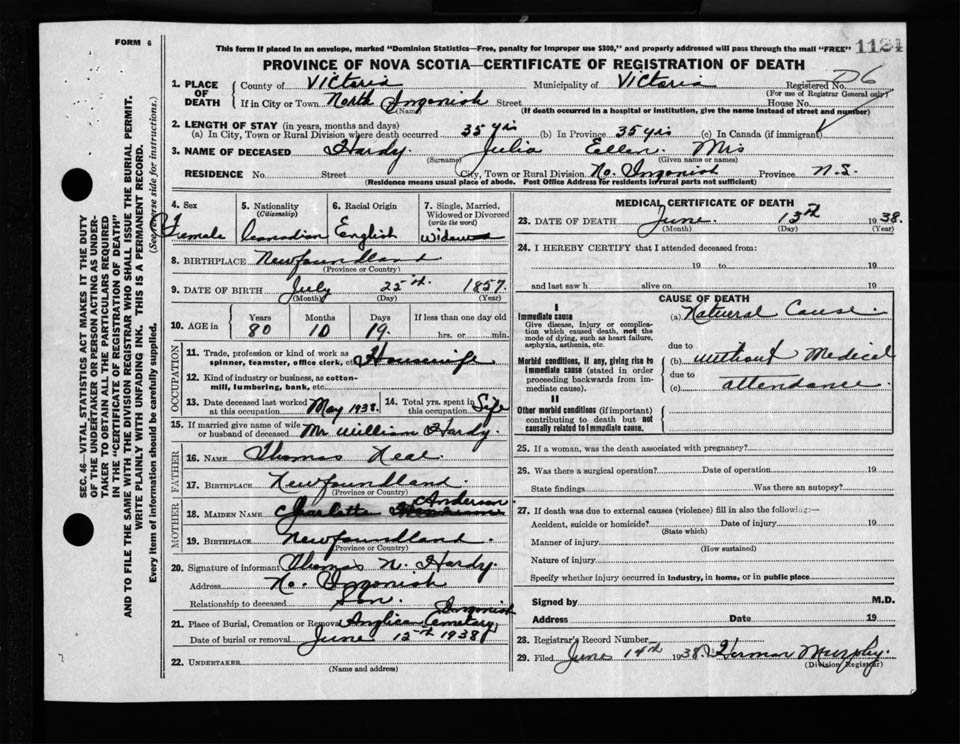 FORM 6
This form if placed in an envelope, marked "Dominion Statistics—Free, penalty for improper use $300," and properly addressed will pass through the mail "FREE"
1124
PROVINCE OF NOVA SCOTIA—CERTIFICATE OF REGISTRATION OF DEATH
SEC. 46—VITAL STATISTICS ACT MAKES IT THE DUTY
OF THE UNDERTAKER OR PERSON ACTING AS UNDER-
TAKER TO OBTAIN ALL THE PARTICULARS REQUIRED
IN THE "CERTIFICATE OF REGISTRATION OF DEATH"
AND TO FILE THE SAME WITH THE DIVISION REGISTRAR WHO SHALL ISSUE THE BURIAL PERMIT.
WRITE PLAINLY WITH UNFADING INK. THIS IS A PERMANENT RECORD.
Every item of information should be carefully supplied. (See reverse side for instructions.)
1. PLACE OF DEATH
County of Victoria Municipality of Victoria Registered No. 06
(For use of Registrar General only)
If in City or Town North Ingonish Street House No.
(Name) (If death occurred in a hospital or institution, give the name instead of street and number)
2. LENGTH OF STAY (in years, months and days)
(a) In City, Town or Rural Division where death occurred 35 yrs (b) In Province 35 yrs (c) In Canada (if immigrant)
3. NAME OF DECEASED Hardy. Julia Ellen. Mrs
(Surname) (Given name or names)
RESIDENCE No. Street City, Town or Rural Division No. Ingonish Province N.S.
(Residence means usual place of abode. Post Office Address for residents in rural parts not sufficient)
4. Sex
Female
5. Nationality
(Citizenship)
Canadian
6. Racial Origin
English
7. Single, Married,
Widowed or Divorced
(write the word)
Widow
8. BIRTHPLACE Newfoundland
(Province or Country)
9. DATE OF BIRTH July 25th. 1857.
(Month) (Day) (Year)
10. AGE in
Years Months Days If less than one day old
80 10 19. hrs. or min.
OCCUPATION
11. Trade, profession or kind of work as
spinner, teamster, office clerk, etc. Housewife
12. Kind of industry or business, as cotton-
mill, lumbering, bank, etc.
13. Date deceased last worked
at this occupation May 1938.
14. Total yrs. spent in
this occupation Life
15. If married give name of wife
or husband of deceased Mr William Hardy.
FATHER
16. NAME Thomas Neal.
17. BIRTHPLACE Newfoundland.
(Province or Country)
MOTHER
18. MAIDEN NAME Charlotte Anderson
19. BIRTHPLACE Newfoundland.
(Province or Country)
20. Signature of informant Thomas N. Hardy.
Address No. Ingonish
Relationship to deceased Son.
21. Place of Burial, Cremation or Removal Anglican Cemetary Ingonish
Date of burial or removal June 15th 1938
22. UNDERTAKER
(Name and address)
MEDICAL CERTIFICATE OF DEATH
23. DATE OF DEATH June. 13th 1938.
(Month) (Day) (Year)
24. I HEREBY CERTIFY that I attended deceased from:
19 to 19
and last saw h alive on 19
CAUSE OF DEATH
I
Immediate cause
Give disease, injury or complica-
tion which caused death, not the
mode of dying, such as heart failure,
asphyxia, asthenia, etc.
(a) Natural Cause.
due to
Morbid conditions, if any, giving rise to
immediate cause (stated in order
proceeding backwards from im-
mediate cause).
(b) without Medical
due to
(c) attendance.
II
Other morbid conditions (if important)
contributing to death but not
causally related to immediate cause.
25. If a woman, was the death associated with pregnancy?
26. Was there a surgical operation? Date of operation 19
State findings Was there an autopsy?
27. If death was due to external causes (violence) fill in also the following:—
Accident, suicide or homicide? Date of injury 19
(State which)
Manner of injury
(How sustained)
Nature of injury
Specify whether injury occurred in industry, in home, or in public place
Signed by M.D.
Address Date 19
28. Registrar's Record Number
29. Filed June 14th 1938 Herman Murphy.
(Division Registrar)